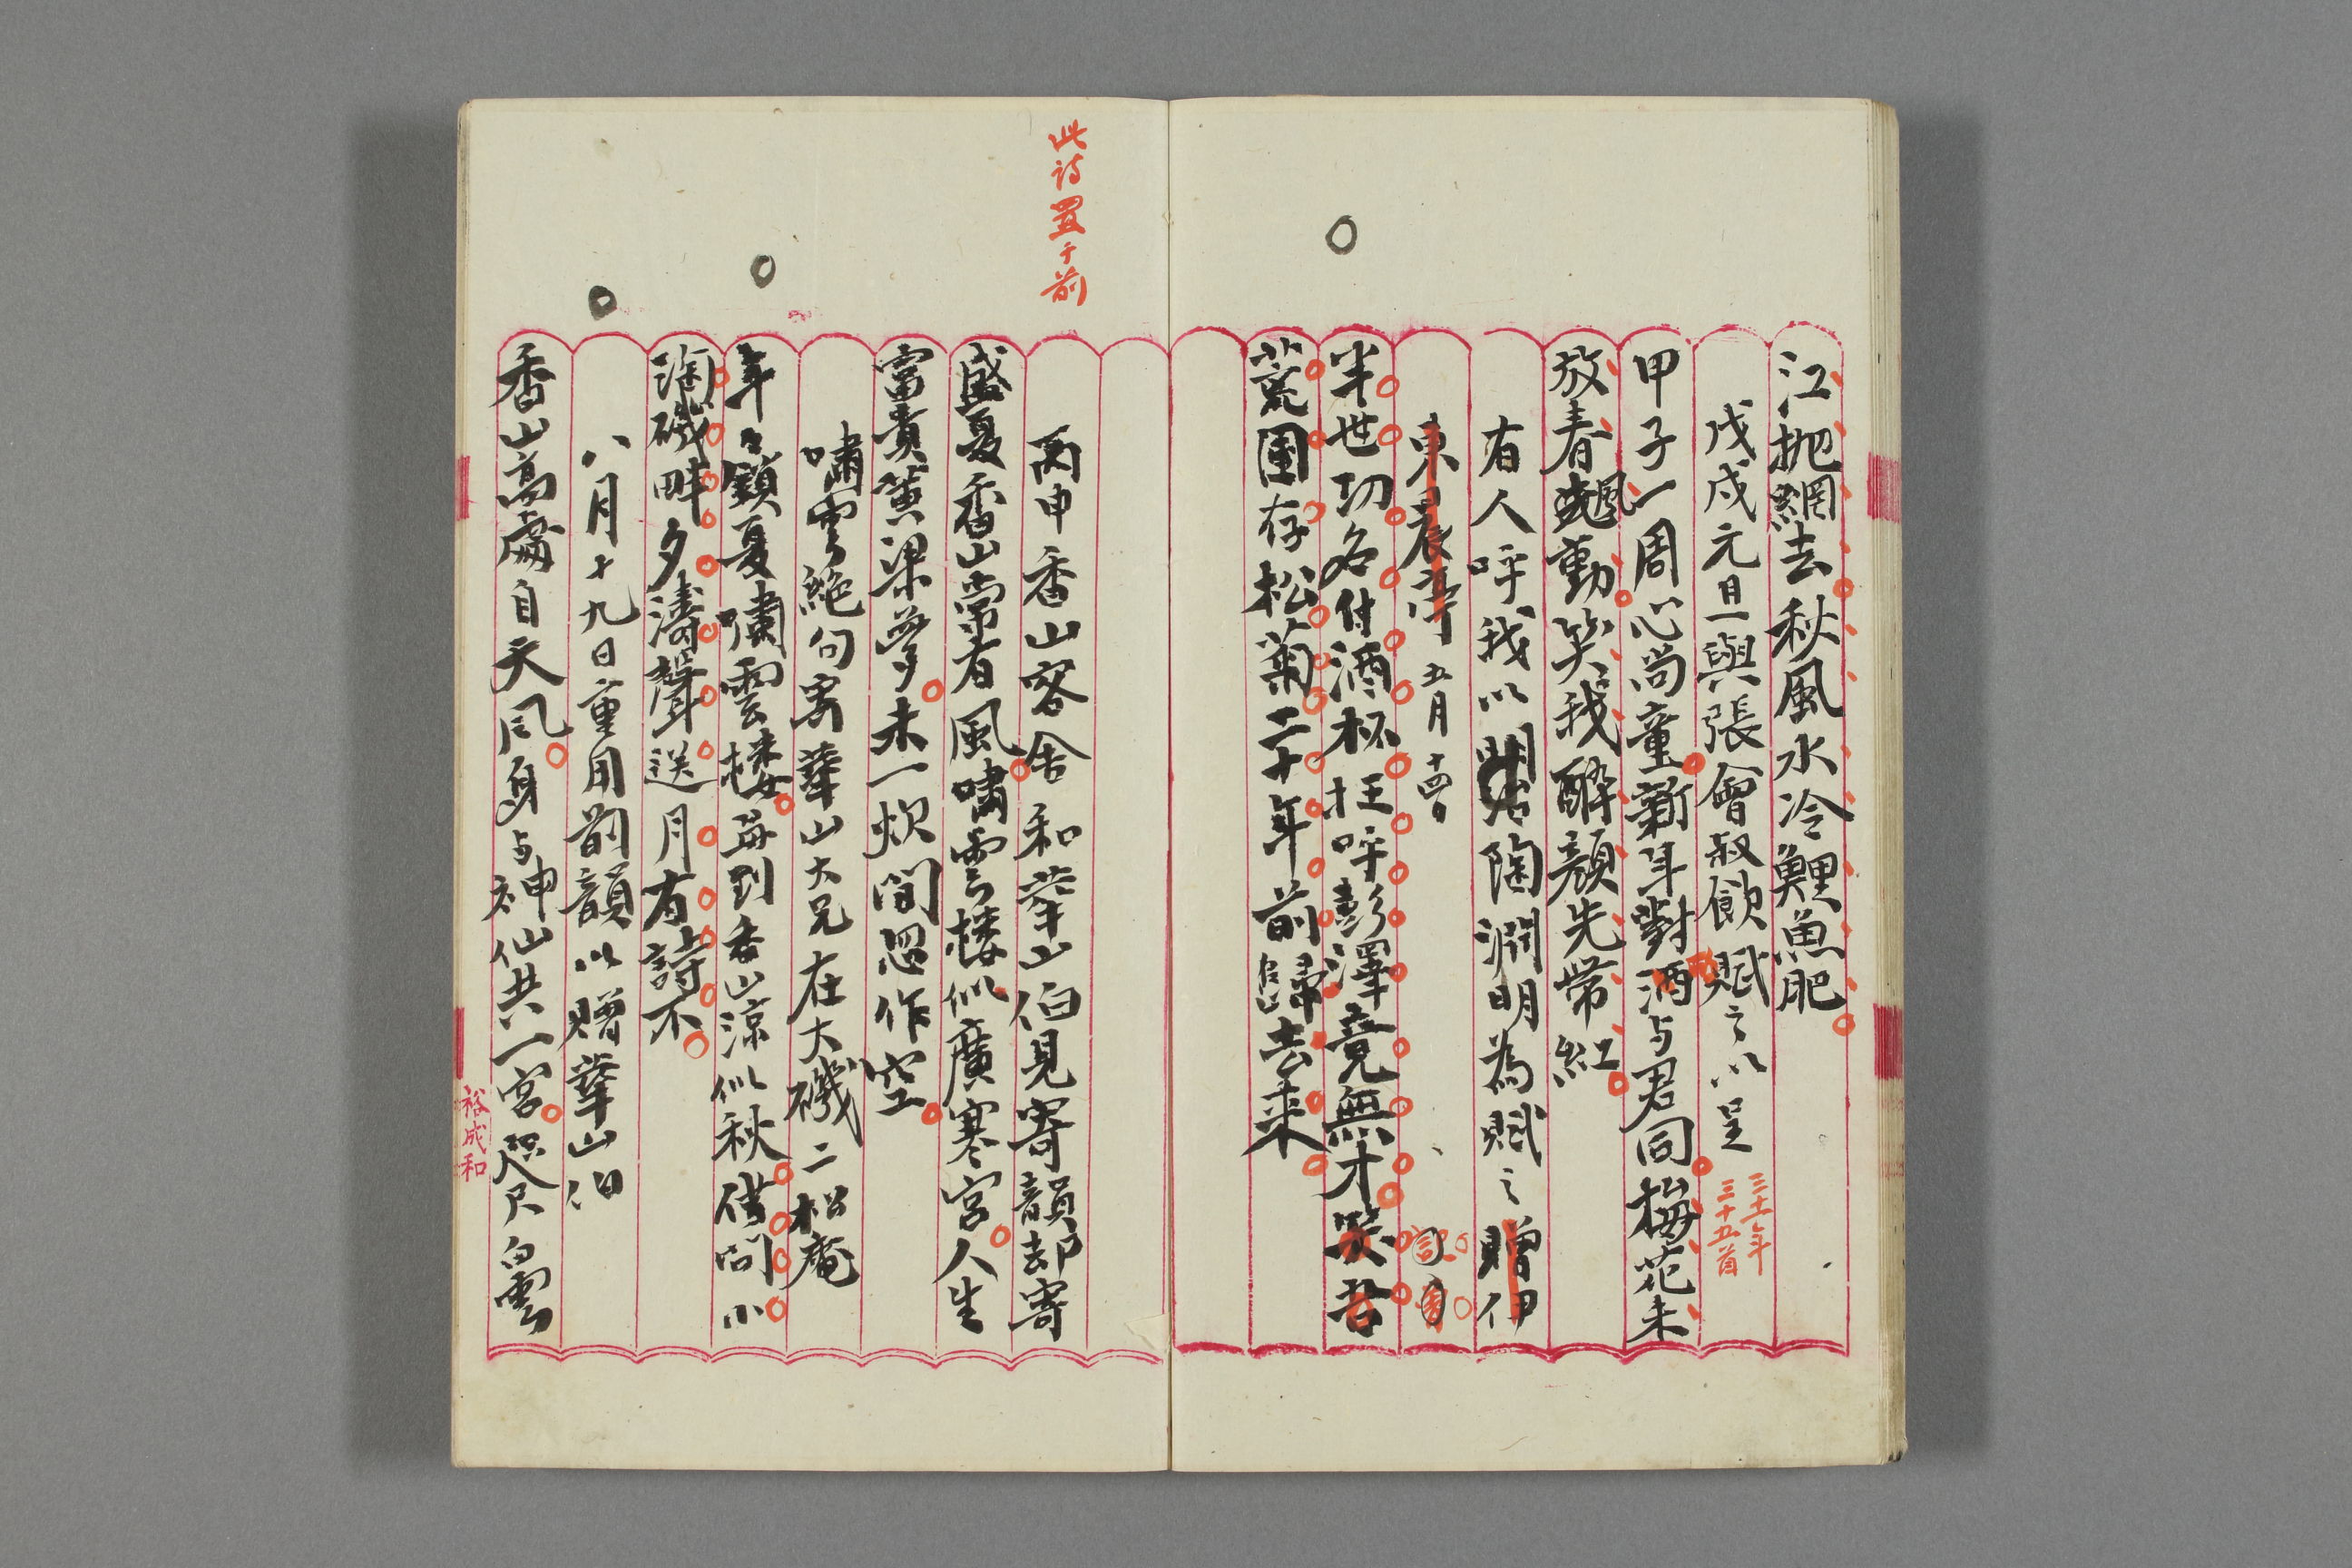 江抛網去秋風水冷鯉魚肥
戊戌元旦與張會叔飲賦之以呈
三十一年
三十五首
甲子一周心尚童新年對酒与君同梅花未
放春颸動笑我醉顔先帶紅
有人呼我以陶淵明為賦之贈伊
東晨亭 五月十四日
半世功名付酒杯枉呼彭澤竟無才笑吾
荒園存松菊二十年前歸去来
此詩置于前
丙申香山客舍和華山伯見寄韻却寄
盛夏香山常有風嘯雲楼似廣寒宮人生
富貴黄梁夢未一炊間忽作空
嘯雲絶句寄華山大兄在大磯二松庵
年々鎖夏嘯雲楼每到香山涼似秋借問小
淘磯畔夕濤聲送月有詩不
八月十九日重用前韻以贈華山伯
香山高處自天風身与神仙共一宮咫尺白雲
裕成和